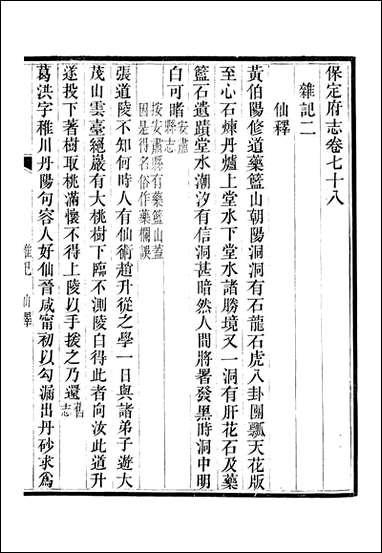 保定府志卷七十八
雜記二
仙釋
黃伯陽修道藥籃山朝陽洞洞有石龍石虎八卦團瓢天花版
至心石煉丹爐上堂水下堂水諸勝境又一洞有肝花石及藥
籃石遺蹟堂水潮汐有信洞甚暗然人間將署發黑時洞中明
白可睹安肅縣志
按安肅縣有藥籃山蓋
因是得名俗作藥欄誤
張道陵不知何時人有仙術趙升從之學一日與諸弟子遊大
茂山雲臺絕巖有大桃樹下臨不測陵白得此者向汝此道升
遂投下著樹取桃滿懷不得上陵以手援之乃還舊志
葛洪字稚川丹陽句容人好仙晉咸甯初以勾漏出丹砂求為
雜記 仙釋